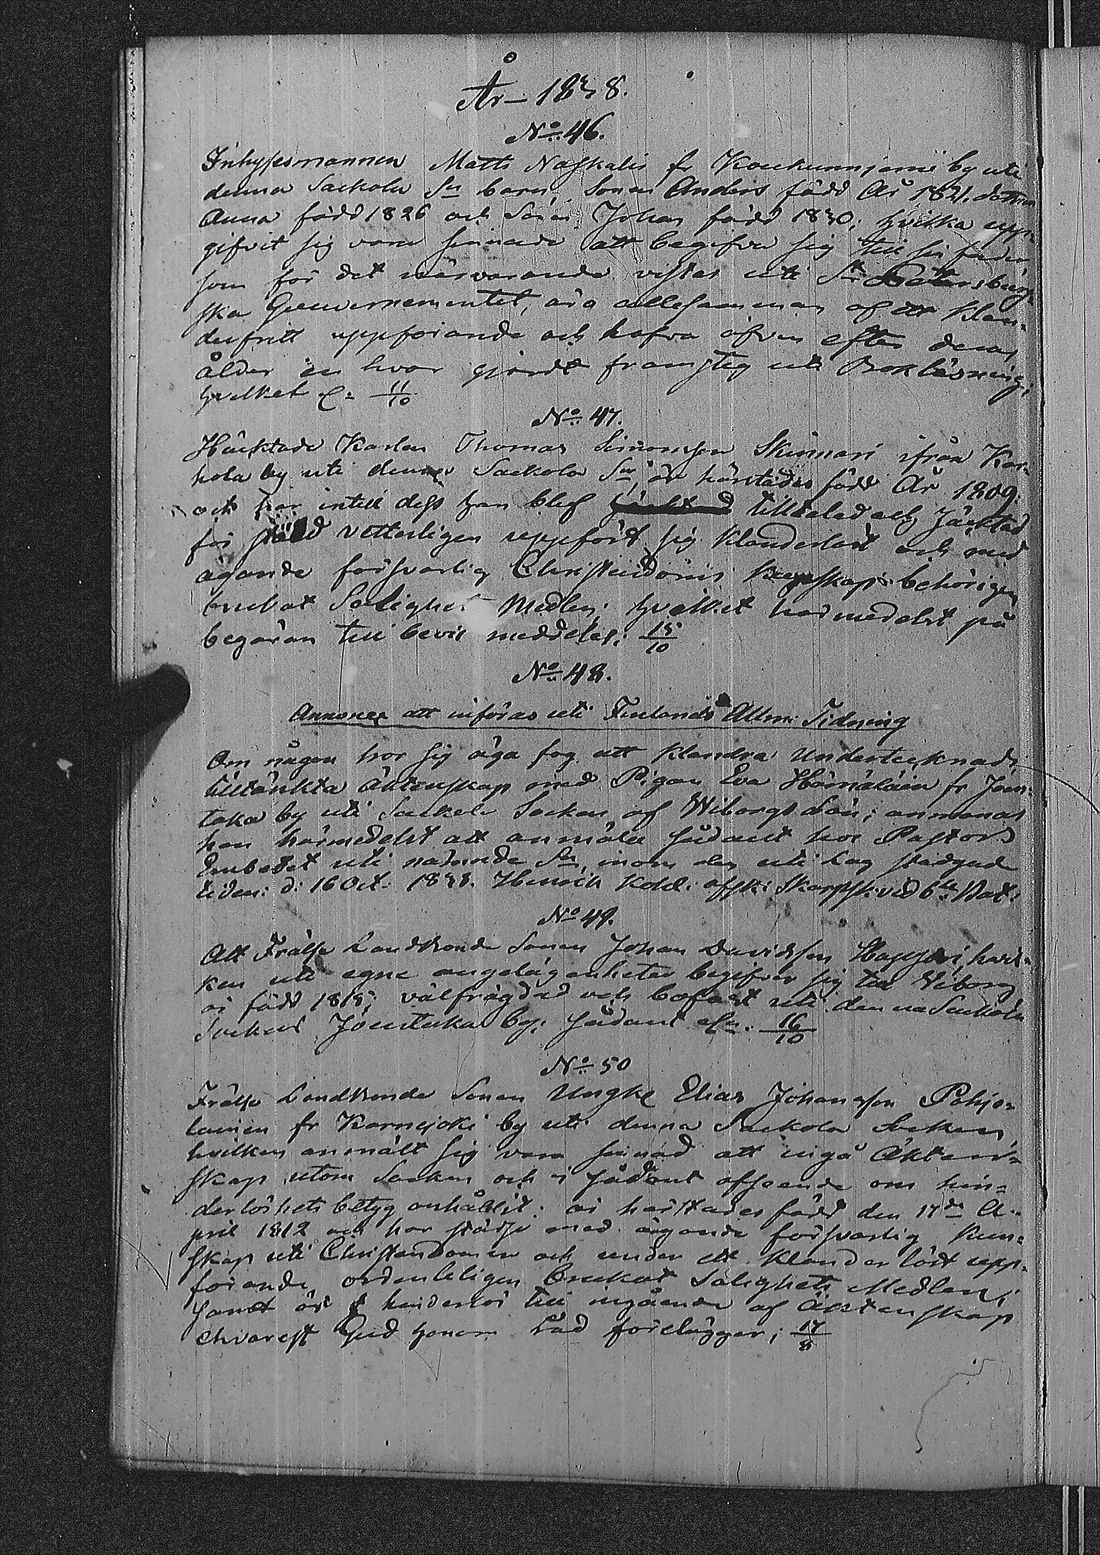 År 1838.
No 46.
Inhysesmannen Matts Naskalis fr Koukunniemi by uti
denna Sackola Sn barn Sonen Anders född År 1821. dottren
Anna född 1826 och Sonen Johan född 1830; hvilka upp-
gifvit sig vara sinnade att begifva sig till sin fader
som för det närvarande vistas uti St Petersburg-
ska Gouvernementet, äro allesamman af ett klan-
derfritt uppförande och hafva äfven efter deras
ålder en hvar gjordt framsteg uti Bokläsning;
hvilket &c: 11/10
No 47.
Häcktade Karlen Thomas Simonsson Skinnari ifrån Kar-
hola by uti denna Sackola Sn, är härstädes född År 1809.
och har intill dess han blef tilltalad och häcktad
för vetterligen uppfört sig klanderlöst och med
ägande försvarlig Christendoms kunskap behörigen
brukat Salighets Medlen; hvilket härmedelst på
begäran till bevis meddelas; 15/10
No 48.
Annonce att införas uti Finlands Allm: Tidning
Om någon tror sig äga fog att klandra Undertecknads
tilltänkta Äktenskap med Pigan Eva Hämäläin fr Joen-
taka by uti Sackola Socken af Wiborgs Län; anmanas
han härmedelst att anmäla sådant hos Pastors
Embetet uti nämnde Sn, inom den uti Lag stadgad
tiden: d: 16 Oct. 1838. Henrich Kohl: afsk: Skarpsk: vid 6te Bat:
No 49.
Att Frälse Landbonde Sonen Johan Davidsson Happoi, hvil-
ken uti egne angelägenheter begifver sig till Wiborg
är född 1815; välfrägdad och bofast uti denna Sackola
Socken Joentaka by; sådant &c. 16/10
No 50
Frälse Landbonde Sonen Ungke Elias Johansson Pohjo-
lainen fr Karnajoki by uti denna Sackola Socken,
hvilken anmält sig vara sinnad att ingå Äkten-
skap utom Socken och i sådant afseende om hin-
derlöshets betyg anhållit: är härstädes född den 17de A-
pril 1812 och har städse med ägande försvarlig kun-
skap uti Christendomen och under ett klanderlöst upp-
förande, ordenteligen brukat Salighets Medlen;
samt är hinderlös till ingående af Äktenskap
ehvarest Gud honom råd förelägger; 17/